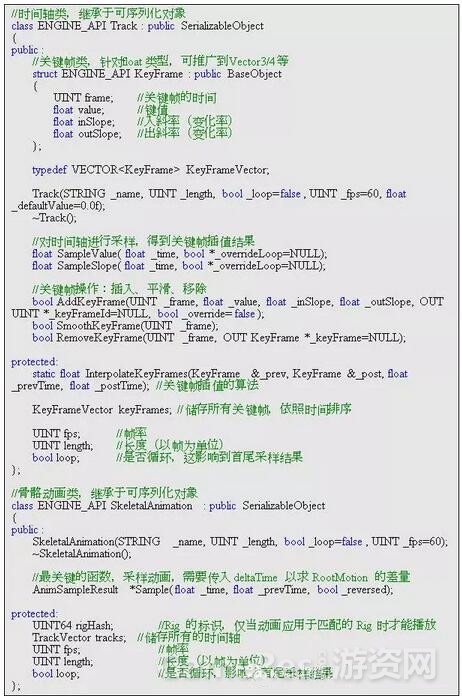 //时间轴类，继承于可序列化对象
class ENGINE_API Track : public SerializableObject
{
public :
//关键帧类，针对float 类型，可推广到Vector3/4等
struct ENGINE_API KeyFrame : public BaseObject
{
UINT frame; //关键帧的时间
float value; //键值
float inSlope; //入斜率（变化率）
float outSlope; //出斜率（变化率）
};
typedef VECTOR<KeyFrame> KeyFrameVector;
Track(STRING _name, UINT _length, bool _loop=false , UINT _fps=60, float
_defaultValue=0.0f);
~Track();
//对时间轴进行采样，得到关键帧插值结果
float SampleValue( float _time, bool *_overrideLoop=NULL);
float SampleSlope( float _time, bool *_overrideLoop=NULL);
//关键帧操作：插入、平滑、移除
bool AddKeyFrame(UINT _frame, float _value, float _inSlope, float _outSlope, OUT
UINT *_keyFrameId=NULL, bool _override= false );
bool SmoothKeyFrame(UINT _frame);
bool RemoveKeyFrame(UINT _frame, OUT KeyFrame *_keyFrame=NULL);
protected:
static float InterpolateKeyFrames(KeyFrame &_prev, KeyFrame &_post, float
_prevTime, float _postTime); //关键帧插值的算法
KeyFrameVector keyFrames; //储存所有关键帧，依照时间排序
UINT fps; //帧率
UINT length; //长度（以帧为单位）
bool loop; //是否循环，这影响到首尾采样结果
};
//骨骼动画类，继承于可序列化对象
class ENGINE_API SkeletalAnimation : public SerializableObject
{
public :
SkeletalAnimation(STRING _name, UINT _length, bool _loop=false , UINT _fps=60);
~SkeletalAnimation();
//最关键的函数，采样动画，需要传入 deltaTime 以求 RootMotion 的差量
AnimSampleResult *Sample(float _time, float _prevTime, bool _reversed);
protected:
UINT64 rigHash; //Rig 的标识，仅当动画应用于匹配的 Rig 时才能播放
TrackVector tracks; //储存所有的时间轴
UINT fps; //帧率
UINT length; //长度（以帧为单位）
bool loop; //是否循环，影响到首尾采样结果
};
游资网